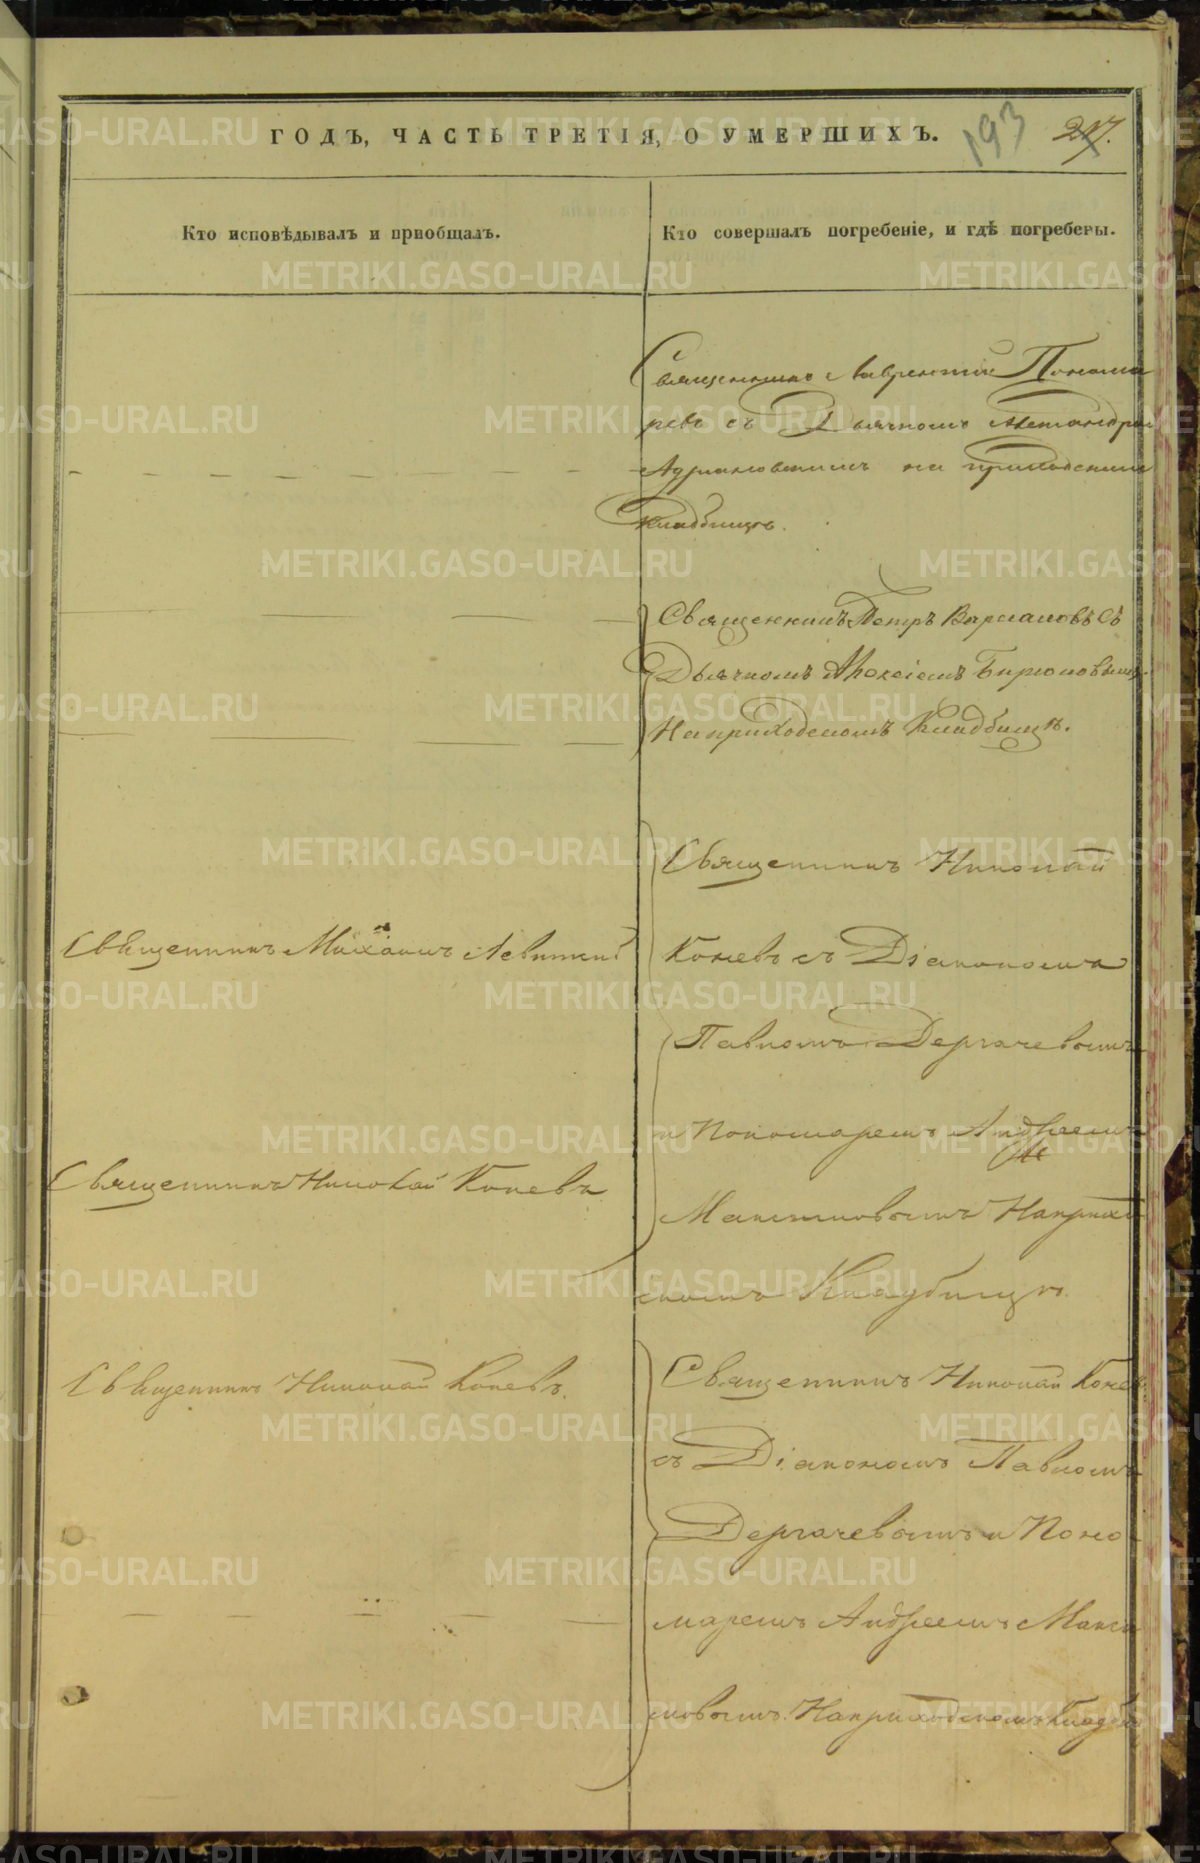 ГОДЪ, ЧАСТЬ ТРЕТІЯ, О УМЕРШИХЪ.
193
217.
Кто исповѣдывалъ и пріобщалъ.
Кто совершалъ погребеніе, и гдѣ погребены.
Священникъ Лаврентій Понома
ревъ съ Дьячкомъ Александром
Адріановскимъ на приходскомъ
Кладбищѣ.
Священникъ Петръ Варламовъ съ
Дьячкомъ Алексіемъ Бирюковымъ
На приходскомъ Кладбищѣ.
Священникъ Николай
Священникъ Михаилъ Левитскій
Коневъ съ Діакономъ
Павломъ Дергачевымъ
и Пономаремъ Андреемъ
Священникъ Николай Коневъ
Максимовымъ На приход
скомъ Кладбищѣ.
Священникъ Николай Коневъ.
Священникъ Николай Коневъ
съ Діакономъ Павломъ
Дергачевымъ и Поно
маремъ Андреемъ Макси
мовымъ. На приходскомъ Кладби
METRIKI.GASO-URAL.RU